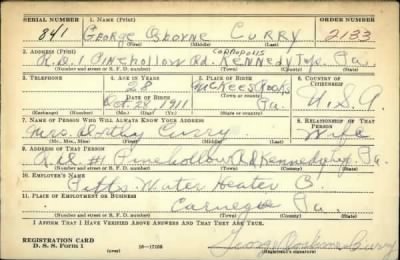 SERIAL NUMBER 1. NAME (Print) ORDER NUMBER
841 GEORGE OSBORNE CURRY 2133
(First) (Middle) (Last)
2. ADDRESS (Print) CORAOPOLIS
R.D.1 PINEHOLLOW Rd. KENNEDY Twp. Pa.
(Number and street or R. F. D. number) (Town) (County) (State)
3. TELEPHONE 4. AGE IN YEARS 5. PLACE OF BIRTH 6. COUNTRY OF CITIZENSHIP
28 McKees Rocks
DATE OF BIRTH (Town or county)
Oct. 28 1911 Pa. U.S.A.
(Exchange) (Number) (Mo.) (Day) (Yr.) (State or country)
7. NAME OF PERSON WHO WILL ALWAYS KNOW YOUR ADDRESS 8. RELATIONSHIP OF THAT PERSON
Mrs. Curry Wife
(Mr., Mrs., Miss) (First) (Middle) (Last)
9. ADDRESS OF THAT PERSON
R.D #1 Pinehollow Rd Kennedy Twp Pa.
(Number and street or R. F. D. number) (Town) (County) (State)
10. EMPLOYER'S NAME
Pitts. Water Heater
11. PLACE OF EMPLOYMENT OR BUSINESS
Carnegie Pa.
(Number and street or R. F. D. number) (Town) (County) (State)
I AFFIRM THAT I HAVE VERIFIED ABOVE ANSWERS AND THAT THEY ARE TRUE.
REGISTRATION CARD
D. S. S. Form 1 (over) 16—17105 George Osborne Curry